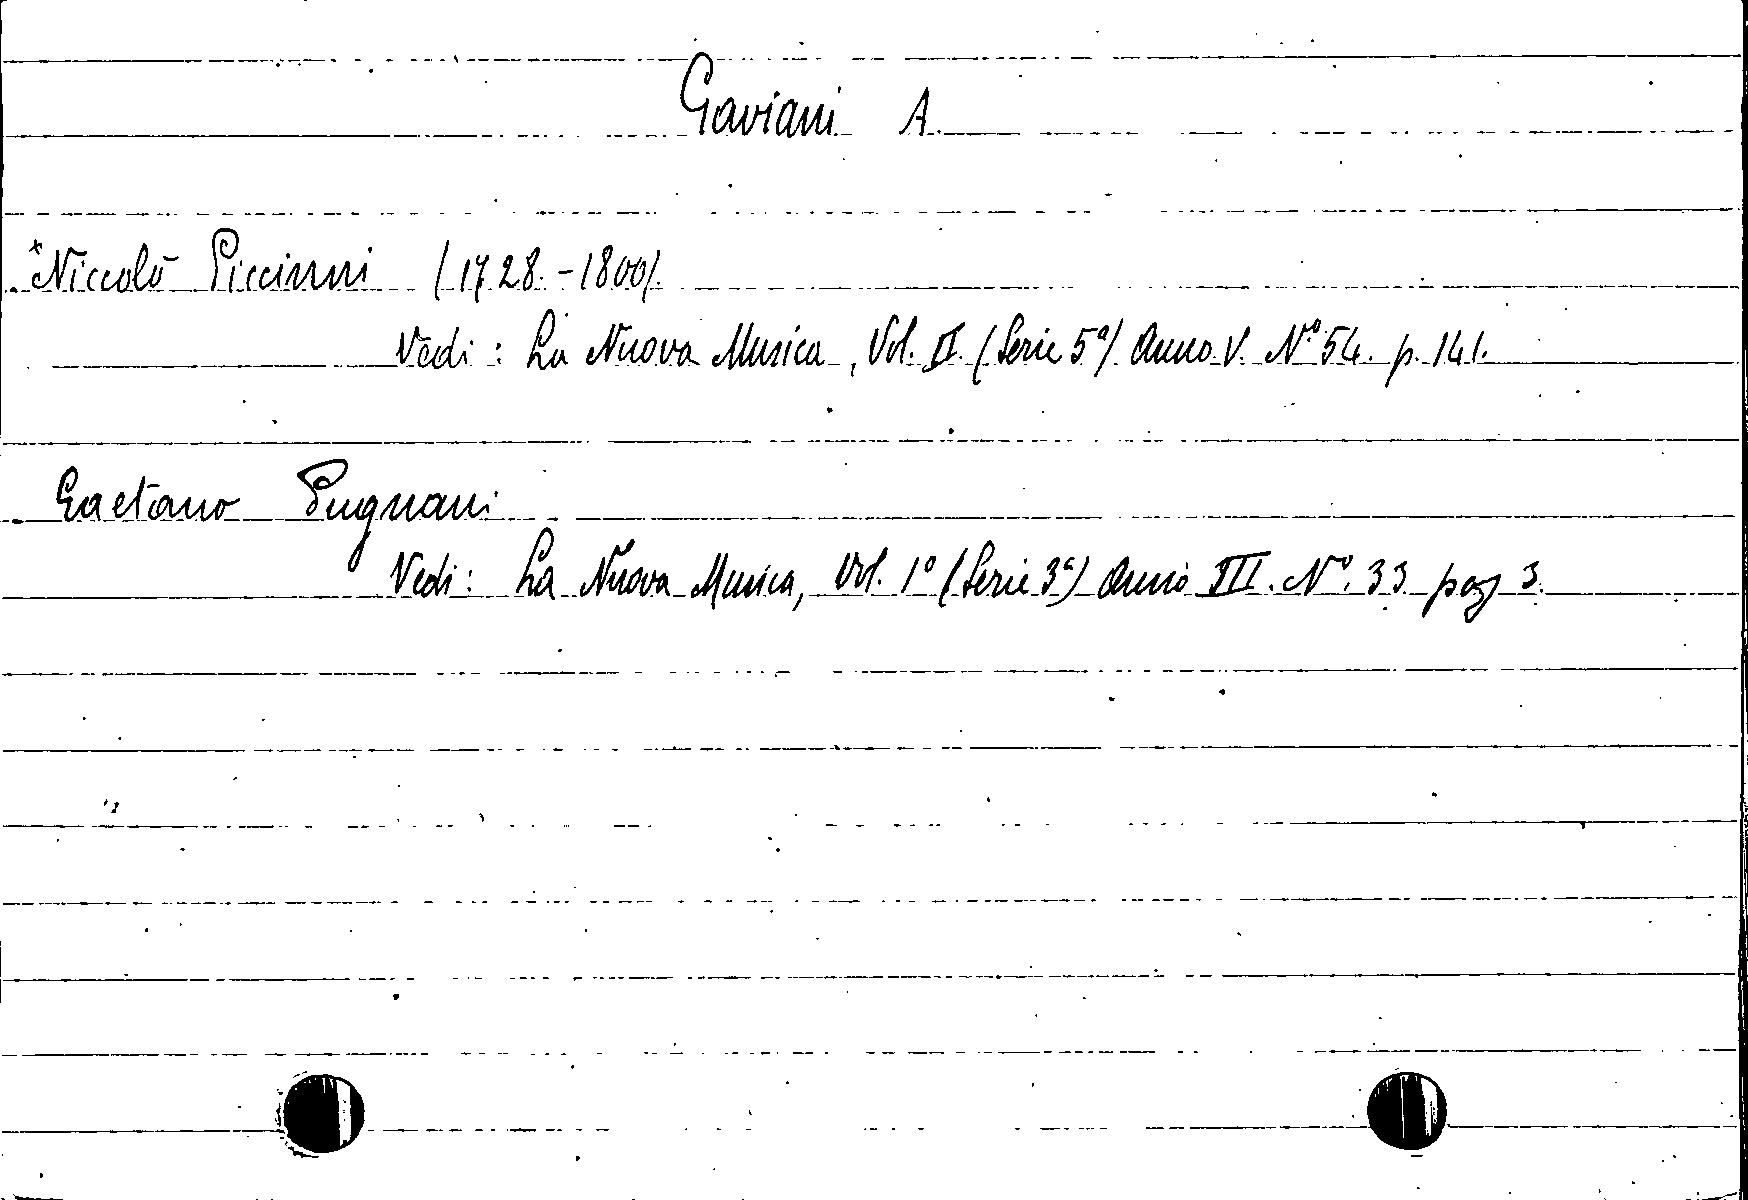 Gaviani A.
*Niccolò Piccinni (1728.-1800).
Vedi: La Nuova Musica, Vol. II. (Serie 5ª) Anno V. Nº 54. p. 141.
Gaetano Pugnani
Vedi: La Nuova Musica, Vol. 1º (Serie 3ª) Anno III. Nº. 33 pag 3.